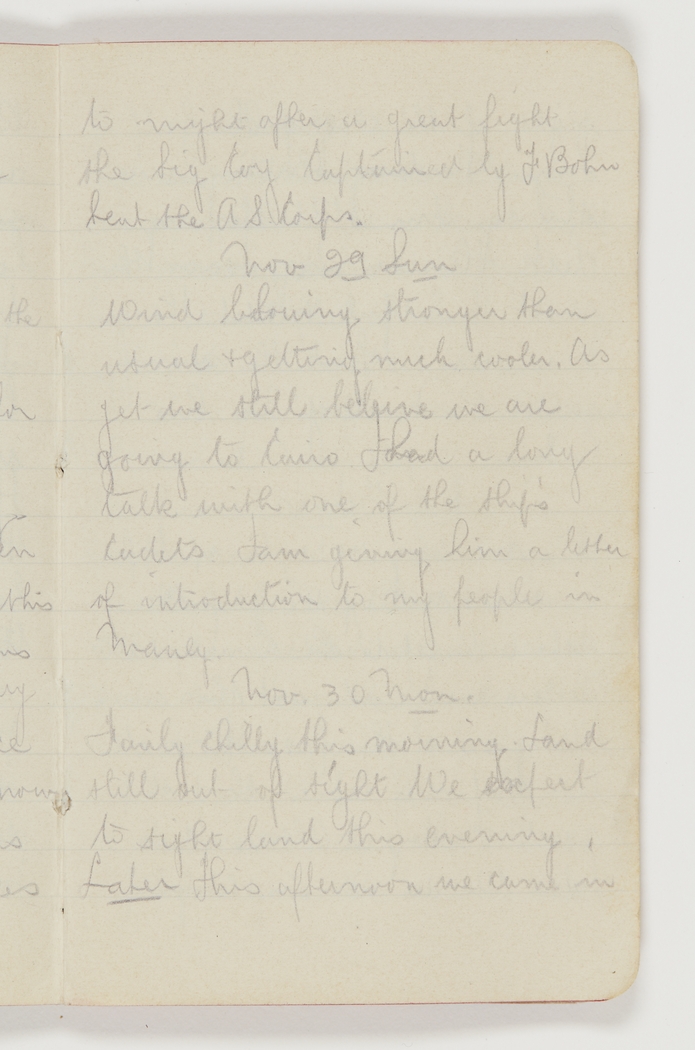 to night after a great fight
the big Coy Captained by J Bohn
beat the A S Corps.
Nov 29 Sun
Wind blowing stronger than
usual & getting much cooler. As
yet we still beleive we are
going to Cairo I had a long
talk with one of the ship's
Cadets. I am giving him a letter
of introduction to my people in
Manly.
Nov. 30 Mon.
Fairly chilly this morning. Land
still out of sight We expect
to sight land this evening.
Later This afternoon we came in
the
for
en
this
ns
ay
ce
now
is
es